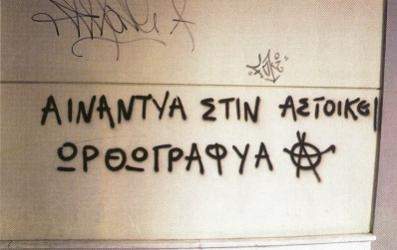 ΑΙΝΑΝΤΥΑ ΣΤΙΝ ΑΣΤΟΙΚΕΙ
ΩΡΘΩΓΡΑΦΥΑ Ⓐ